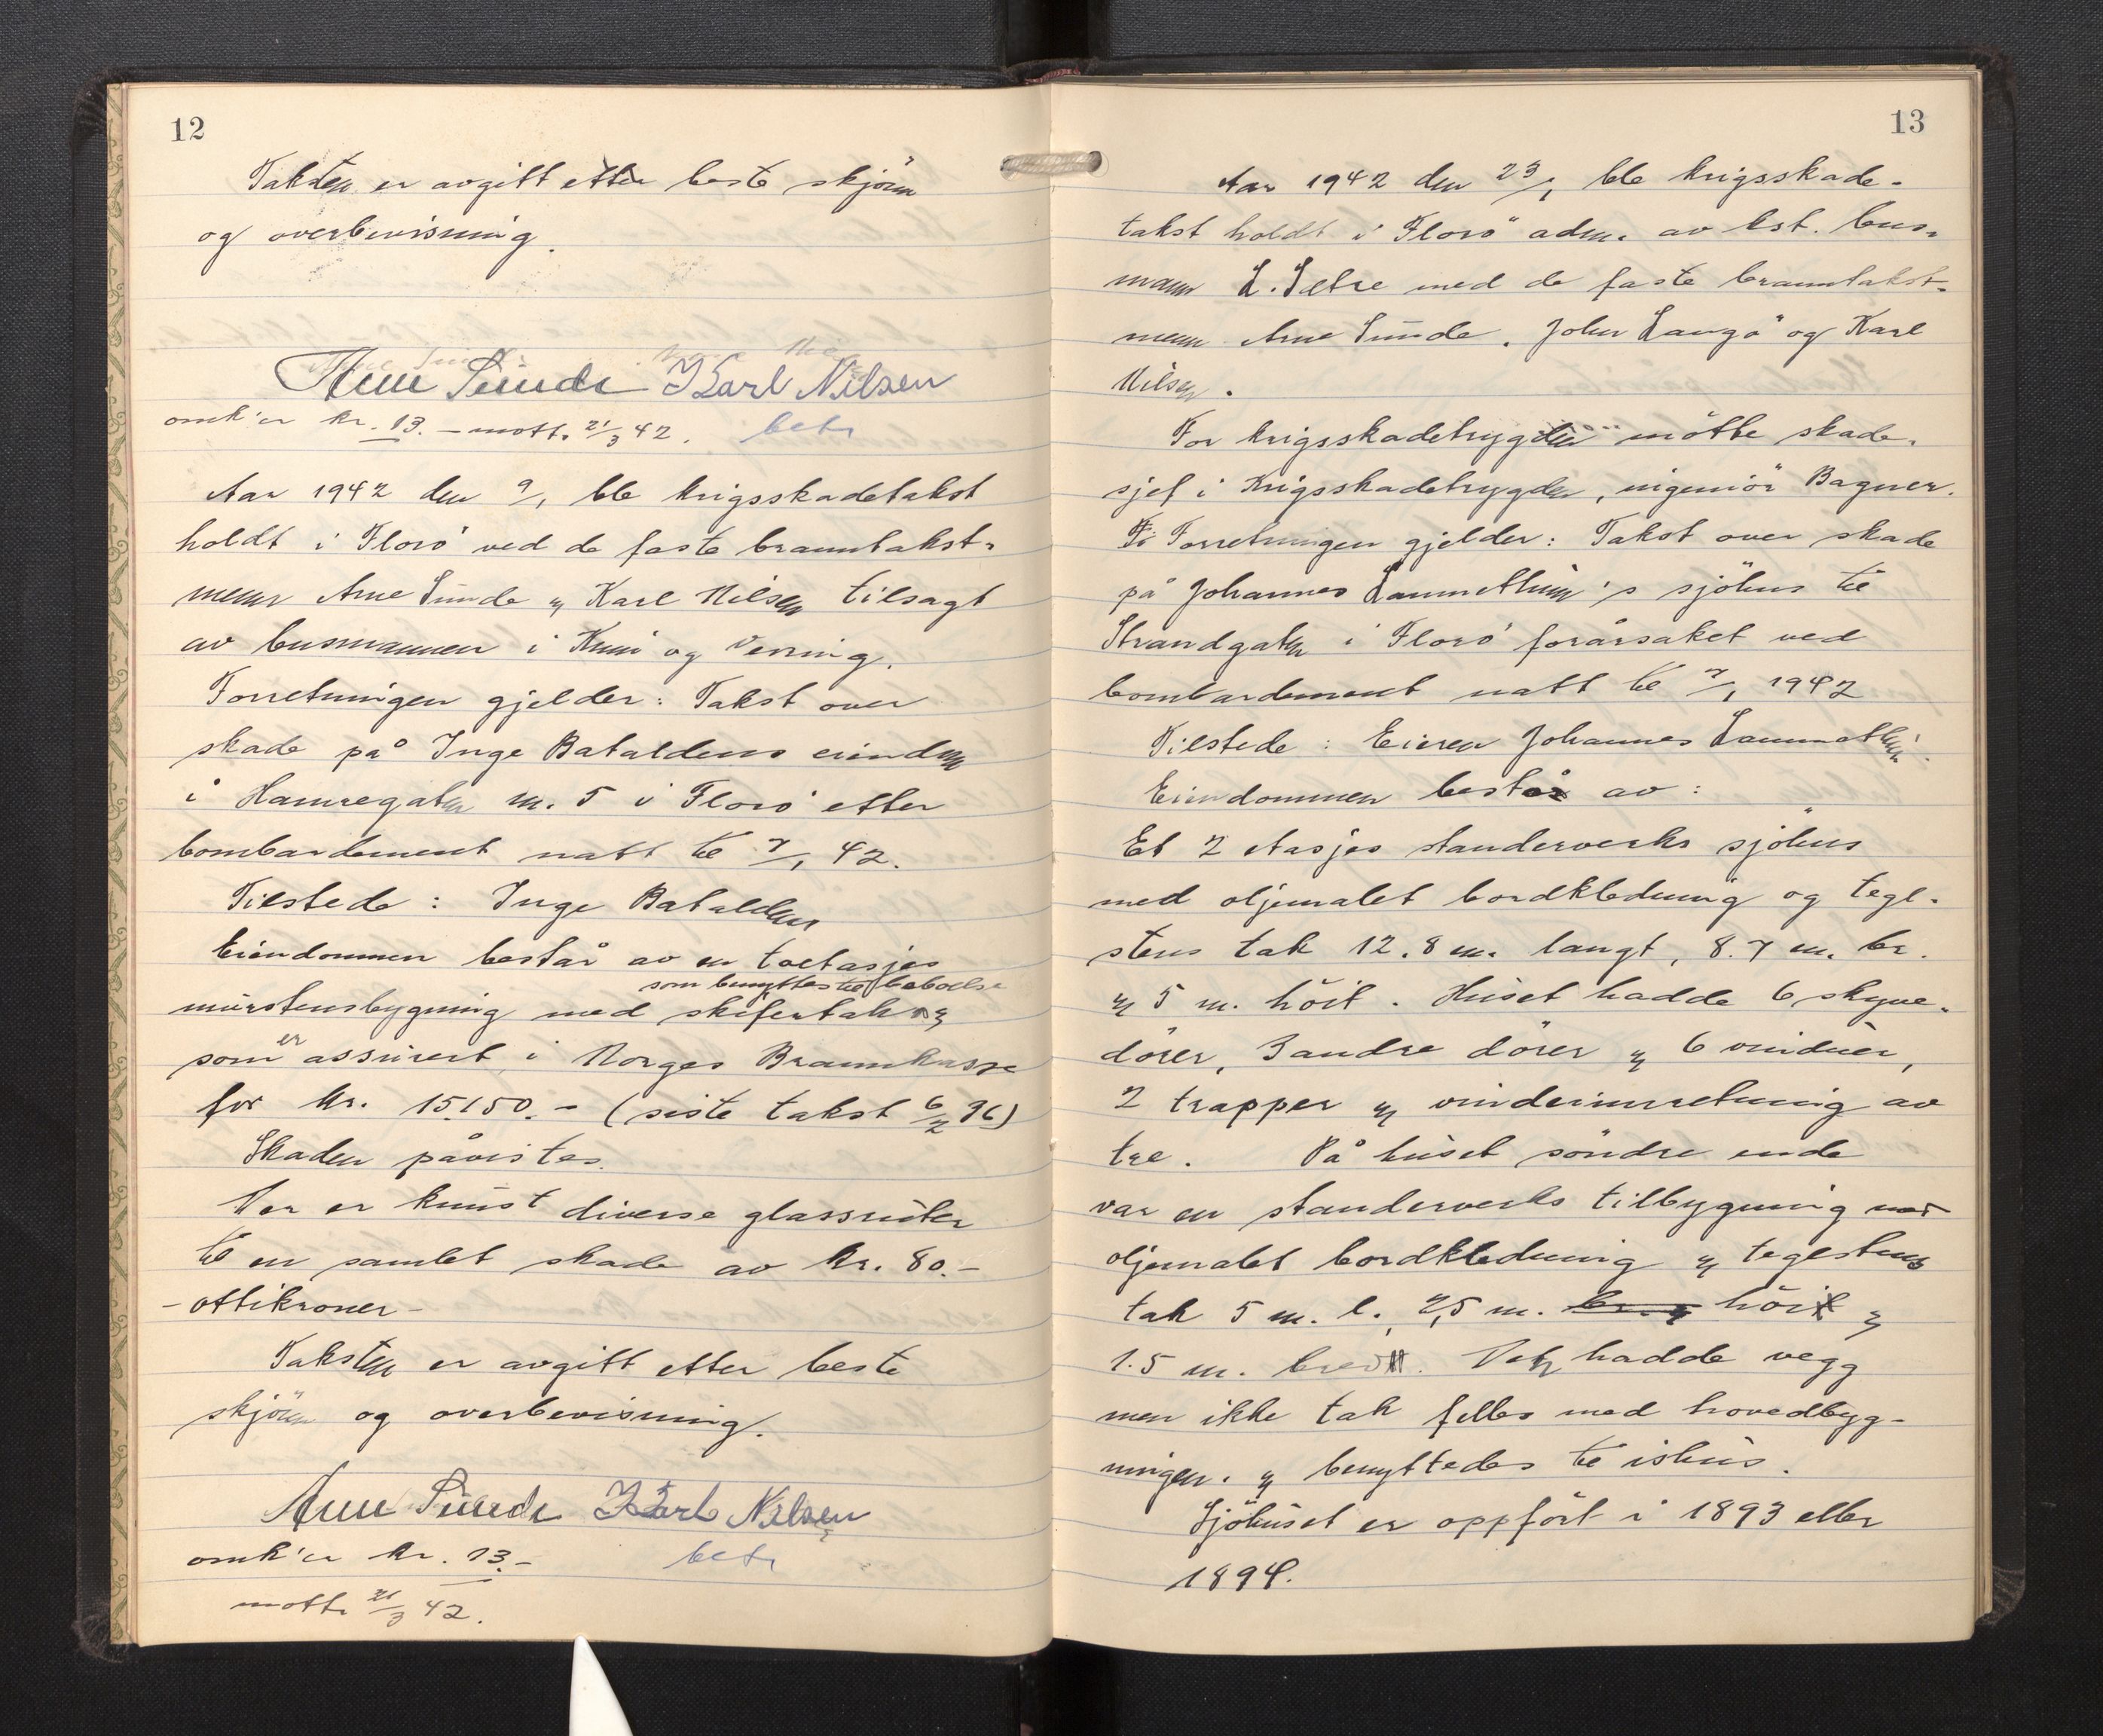 12
Taksten er avgitt etter beste skjönn
og overbevisning.
Arne Sunde Karl Nilsen
omk'er kr. 13.- mott. 21/3 42. bet.
Aar 1942 den 9/1 ble krigsskadetakst
holdt i Florö ved de faste branntakst-
menn Arne Sunde og Karl Nilsen tilsagt
av lensmannen i Kinn og Vevring.
Forretningen gjelder: Takst over
skade på Inge Bataldens eiendom
i Hamregaten nr. 5 i Florö etter
bombardement natt til 7/1 42.
Tilstede: Inge Batalden
Eiendommen består av en toetasjes
som benyttes til beboelse
murstensbygning med skifertak og
som er assurert i Norges Brannkasse
for kr. 15150.- (siste takst 6/2 36)
Skaden påvistes.
Der er knust diverse glassruter
til en samlet skade av kr. 80.-
- ottikroner -
Taksten er avgitt etter beste
skjönn og overbevisning.
Arne Sunde Karl Nilsen
omk'er kr. 13.- bet.
mott. 21/3 42.
13
Aar 1942 den 23/1 ble krigsskade-
takst holdt i Florö adm. av kst. lens-
mann L. Sætre med de faste branntakst-
menn Arne Sunde, John Langö og Karl
Nilsen.
For krigsskadetrygden mötte skade-
sjef i Krigsskadetrygden, ingeniör Bagner.
Forretningen gjelder: Takst over skade
på Johannes 's sjöhus til
Strandgaten i Florö forårsaket ved
bombardement natt til 7/1 1942
Tilstede: Eieren Johannes
Eiendommen består av:
Et 2 etasjes standerverks sjöhus
med oljemalet bordkledning og tegl-
stens tak 12.8 m. langt, 8.7 m. br.
og 5 m. höit. Huset hadde 6 skyve-
dörer, 3 andre dörer og 6 vinduer,
2 trapper og vinderinnretning av
tre. På huset söndre ende
var en standerverks tilbygning med
oljemalet bordkledning og teglstens
tak 5 m. l., 2,5 m. br. og höi og
1.5 m. bredt. Den hadde vegg
men ikke tak felles med hovedbyg-
ningen. og benyttedes til ishus.
Sjöhuset er oppfört i 1893 eller
1894.